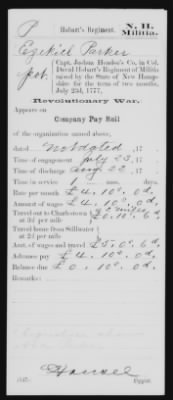 P Hobart's Regiment. N. H. Militia.
Ezekiel Parker
pvt. Capt. Joshua Hendee's Co. in Col.
David Hobart's Regiment of Militia
raised by the State of New Hamp-
shire for the term of two months,
July 23d, 1777.
Revolutionary War.
Appears on
Company Pay Roll
of the organization named above,
dated not dated, 17
Time of engagement July 23, 17
Time of discharge Aug 22, 17
Time in service 1 mos. days.
Rate per month £4. 10s. 0d.
Amount of wages £4. 10s. 0d.
Travel out to Charlestown at 3d per mile £0. 10s. 6d.
Travel home from Stillwater at 2d per mile £
Amt. of wages and travel £5. 0s. 6d.
Advance pay £4. 10s. 0d.
Balance due £0. 10s. 0d.
Remarks:
Copyist.